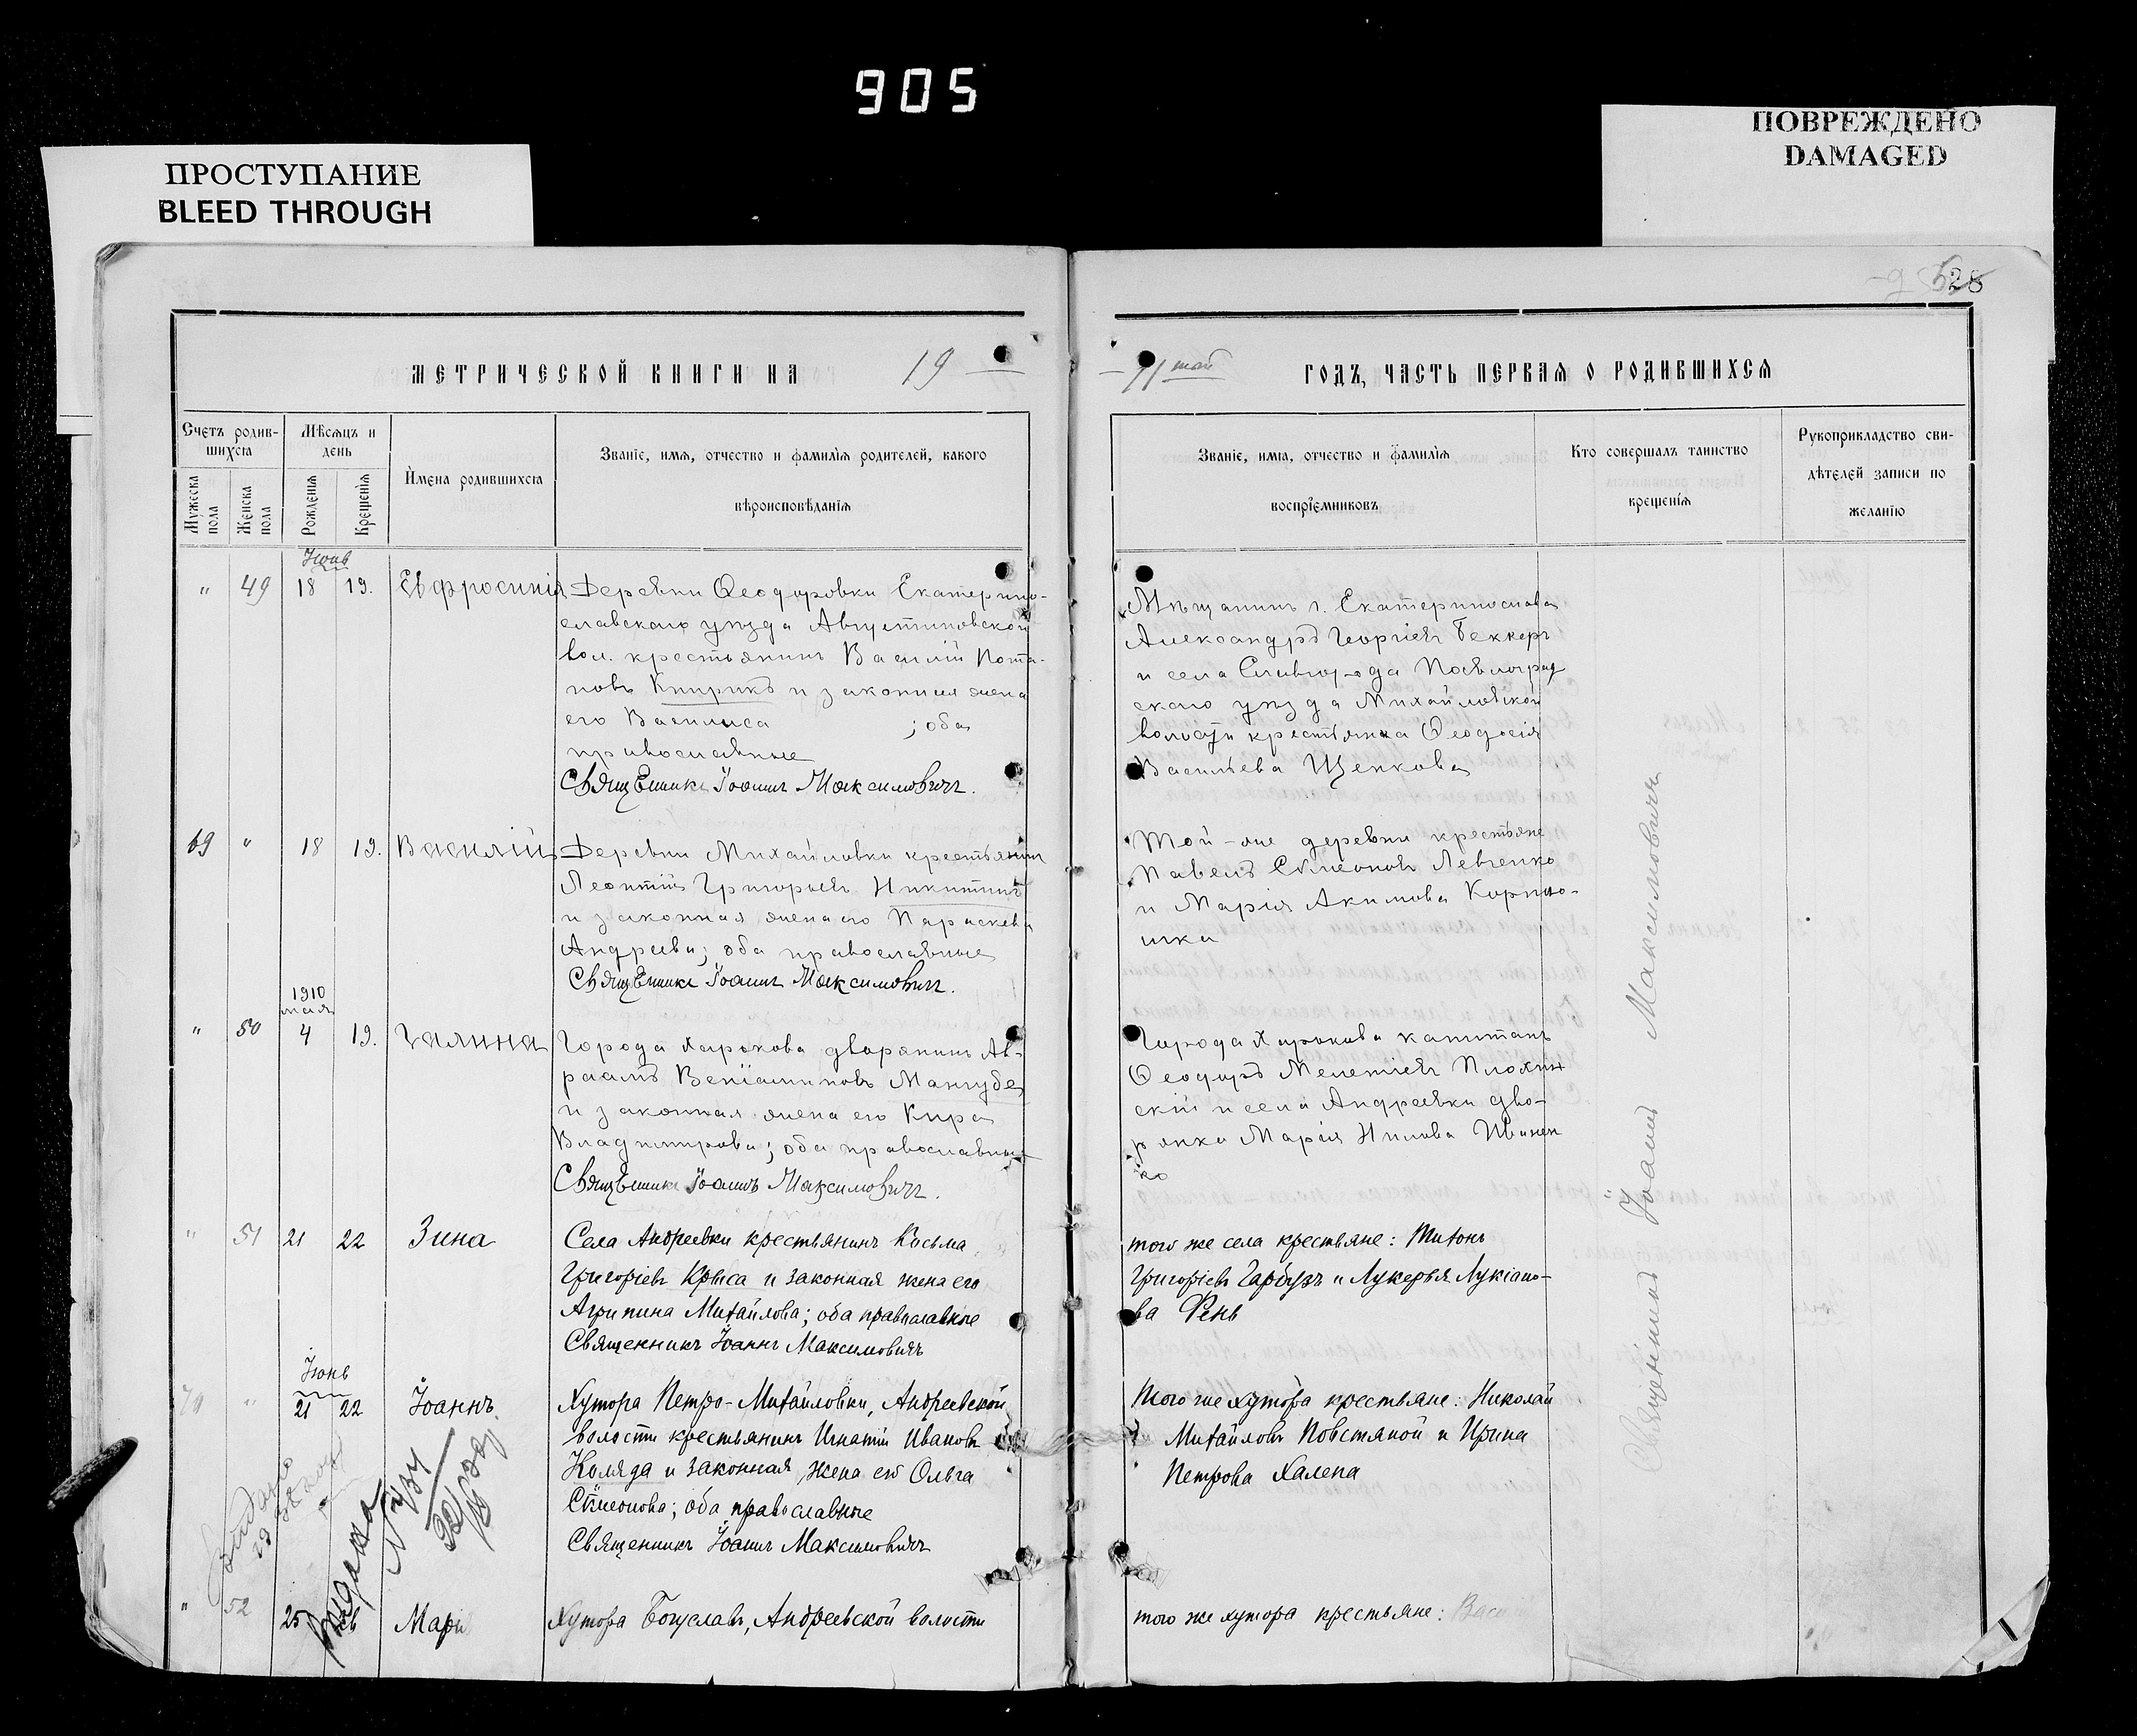 905
ПРОСТУПАНИЕ
BLEED THROUGH
ПОВРЕЖДЕНО
DAMAGED
528
МЕТРИЧЕСКОЙ КНИГИ НА 19
11 ГОДЪ, ЧАСТЬ ПЕРВАЯ О РОДИВШИХСЯ
Счетъ родившихся
Мужеска пола
Женска пола
Мѣсяцъ и день
Рожденія
Крещенія
Имена родившихся
Званіе, имя, отчество и фамилія родителей, какого
вѣроисповѣданія
Званіе, имя, отчество и фамилія
воспріемниковъ
Кто совершалъ таинство
крещенія
Рукоприкладство сви-
дѣтелей записи по
желанію
Іюнь
" 49 18 19. Евфросинія
Деревни Ѳеодоровки Екатерино-
славскаго уѣзда Августиновской
вол. крестьянинъ Василій Пота-
повъ Книрикъ и законная жена
его Василиса ; оба
православные
Священникъ Іоаннъ Максимовичъ.
Мѣщанинъ г. Екатеринослава
Александръ Георгіевъ Беккеръ
и села Славгорода Павлоград
скаго уѣзда Михайловской
волости крестьянка Ѳеодосія
Васильева Щенкова
69 " 18 19. Василій
Деревни Михайловки крестьянинъ
Леонтій Григорьевъ Никитинъ
и законная жена его Параскева
Андреева; оба православные
Священникъ Іоаннъ Максимовичъ.
Той-же деревни крестьяне
Павелъ Сѵмеоновъ Левченко
и Марія Акимова Корніо-
шка
1910
мая
" 50 4 19. Галина
Города Харькова дворянинъ Ав-
раамъ Веніаминовъ Мангубе
и законная жена его Кира
Владимірова; оба православные
Священникъ Іоаннъ Максимовичъ.
Города Харькова капитанъ
Ѳеодоръ Мелетіевъ Плохин
скій и села Андреевки дво-
рянка Марія Нилова Иванен
ко
" 51 21 22 Зина
Села Андреевки крестьянинъ Косьма
Григоріевъ Крыса и законная жена его
Агрипина Михайлова; оба православные
Священникъ Іоаннъ Максимовичъ
того же села крестьяне: Тихонъ
Григоріевъ Гарбузъ и Лукерья Лукіано-
ва Фень
Іюнь
70 " 21 22 Іоаннъ.
Хутора Петро-Михайловки, Андреевской
волости крестьянинъ Игнатій Ивановъ
Коляда и законная жена его Ольга
Сѵмеонова; оба православные
Священникъ Іоаннъ Максимовичъ
того же хутора крестьяне: Николай
Михайловъ Повстяной и Ирина
Петрова Халепа
" 52 25 26 Марі
Хутора Богуславъ, Андреевской волости
того же хутора крестьяне: Васи
Священникъ Іоаннъ Максимовичъ